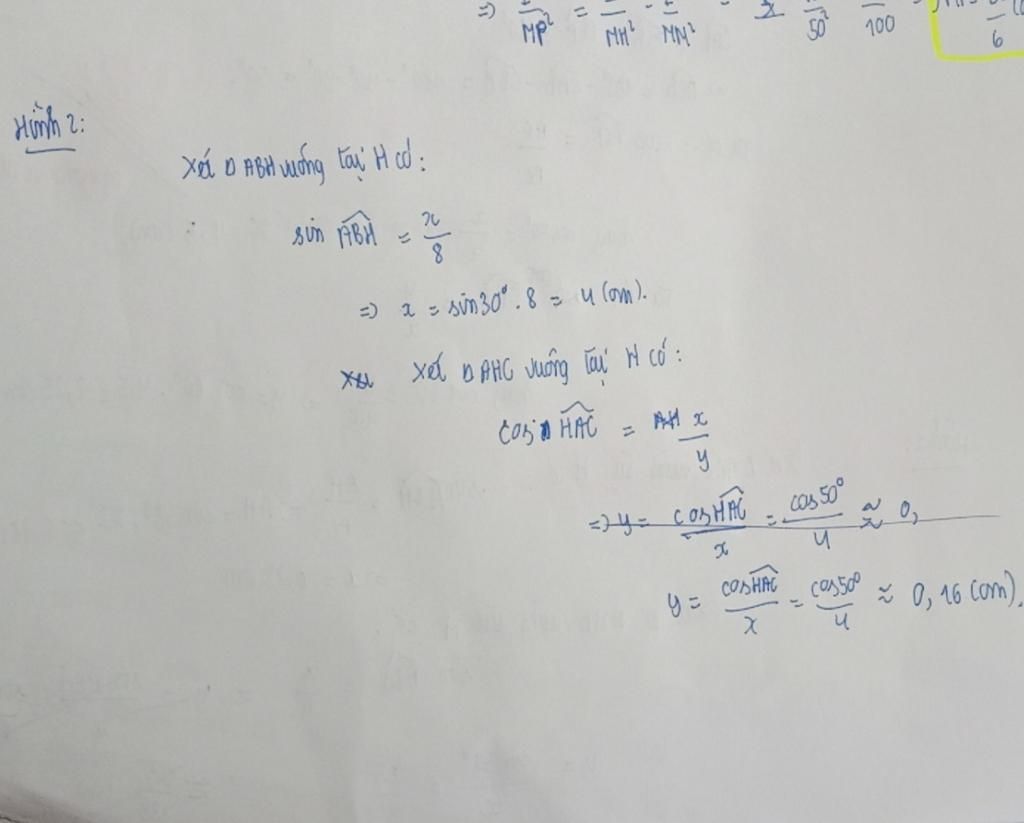 => 1/MP² = 1/NH² - 1/MN² = 50² 100 6
Hình 2:
Xét Δ ABH vuông tại H có:
sin ABH = x/8
=> x = sin30° . 8 = 4 (cm).
Xét Δ AHC vuông tại H có:
cos HAC = x/y
=> y = cosHAC/x = cos50°/4 ≈ 0,
y = cosHAC/x = cos50°/4 ≈ 0,16 (cm).